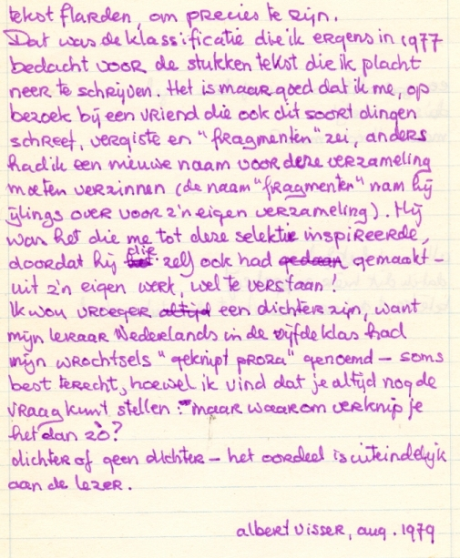 tekst flarden, om precies te zijn.
Dat was de klassificatie die ik ergens in 1977
bedacht voor de stukken tekst die ik placht
neer te schrijven. Het is maar goed dat ik me, op
bezoek bij een vriend die ook dit soort dingen
schreef, vergiste en "fragmenten" zei, anders
had ik een nieuwe naam voor deze verzameling
moeten verzinnen (de naam "fragmenten" nam hij
ijlings over voor z'n eigen verzameling). Hij
was het die me tot deze selektie inspireerde,
doordat hij die zelf ook had gedaan gemaakt -
uit z'n eigen werk, wel te verstaan.
Ik wou vroeger altijd een dichter zijn, want
mijn leraar Nederlands in de vijfde klas had
mijn wrochtsels "geknipt proza" genoemd - soms
best terecht, hoewel ik vind dat je altijd nog de
vraag kunt stellen: "maar waarom verknip je
het dan zó?
dichter of geen dichter - het oordeel is uiteindelijk
aan de lezer.
albert visser, aug. 1979